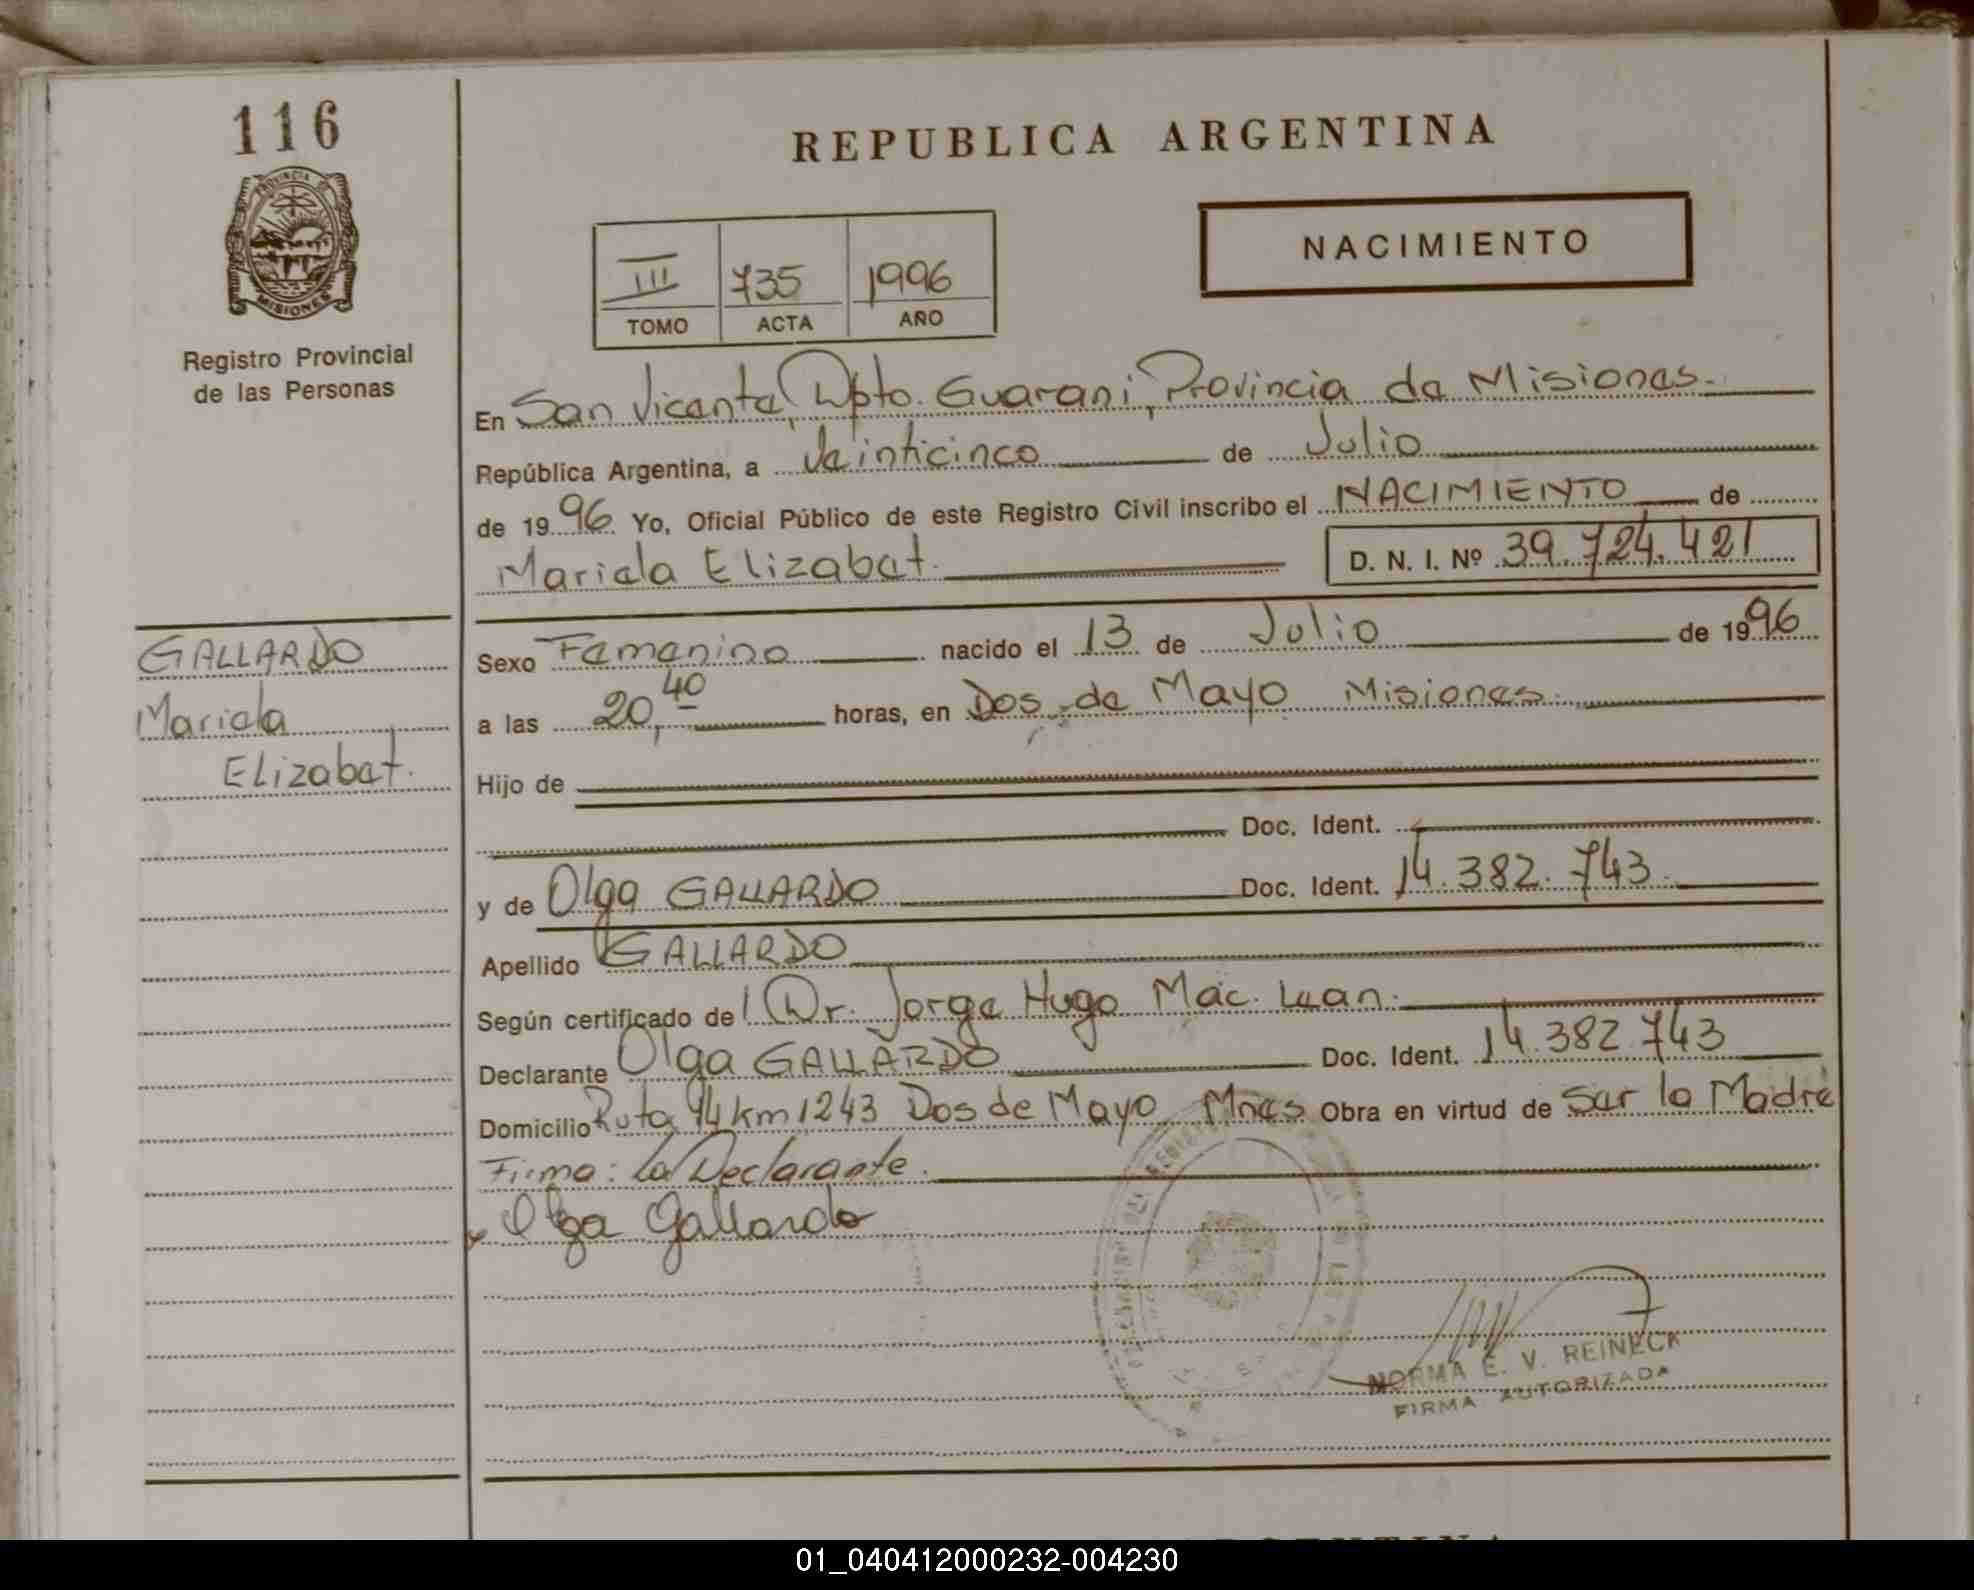 116
REPUBLICA ARGENTINA
PROVINCIA DE
MISIONES
Registro Provincial
de las Personas
NACIMIENTO
III 735 1996
TOMO ACTA AÑO
En San Vicente, Dpto. Guarani, Provincia de Misiones.
República Argentina, a Veinticinco de Julio
de 1996 Yo, Oficial Público de este Registro Civil inscribo el NACIMIENTO de
Mariela Elizabet. D. N. I. Nº 39.724.421
GALLARDO
Mariela
Elizabet.
Sexo Femenino nacido el 13 de Julio de 1996
a las 20,40 horas, en Dos de Mayo Misiones.
Hijo de
Doc. Ident.
y de Olga GALLARDO Doc. Ident. 14.382.743.
Apellido GALLARDO
Según certificado del Dr. Jorge Hugo Mac. Lean.
Declarante Olga GALLARDO Doc. Ident. 14.382.743
Domicilio Ruta 14 km 1243 Dos de Mayo Mnes Obra en virtud de Ser la Madre
Firma: La Declarante.
Olga Gallardo
NORMA E. V. REINECK
FIRMA AUTORIZADA
01_040412000232-004230